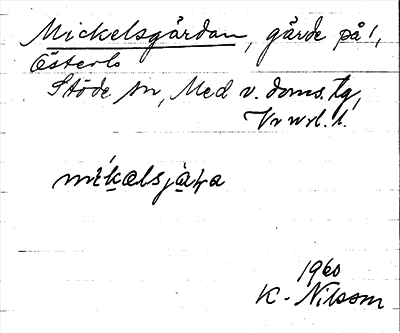 Mickelsgårdan, gårde på 1,
Österlo
Stöde sn, Med v. doms. tg,
mikalsjaɳa
1960
K. Nilsson